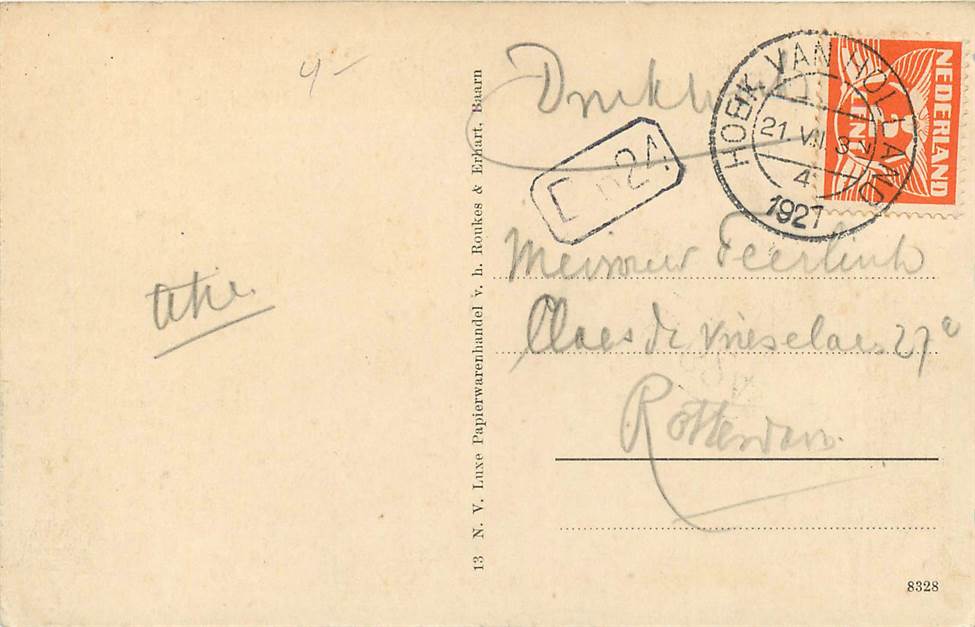 4-
Drukwerk
HOEK VAN HOLLAND
21 VII 3-N
4
1927
NEDERLAND
CENT
24
Mevrouw Feerlink
Claes de Vrieselaan 27
Rotterdam.
13 N. V. Luxe Papierwarenhandel v. h. Roukes & Erhart, Baarn
8328